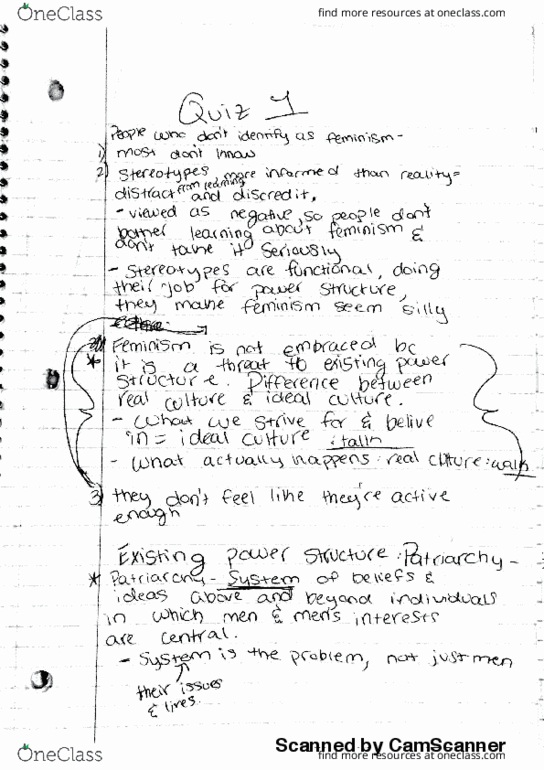 OneClass
find more resources at oneclass.com
Quiz 1
People who don't identify as feminism -
1) most don't know
2) Stereotypes more informed than reality =
from learning
distract and discredit,
- viewed as negative, so people don't
bother learning about feminism &
don't take it seriously
- Stereotypes are functional, doing
their job for power structure,
they make feminism seem silly
Feminism is not embraced bc
* it is a threat to existing power
structure. Difference between
real culture & ideal culture.
- What we strive for & belive
in = ideal culture : talk
- What actually happens : real culture : walk
3) they don't feel like they're active
enough
Existing power structure : Patriarchy -
* Patriarchy - System of beliefs &
ideas above and beyond individuals
in which men & men's interests
are central.
- System is the problem, not just men
their issues
& lives.
Scanned by CamScanner
OneClass
find more resources at oneclass.com